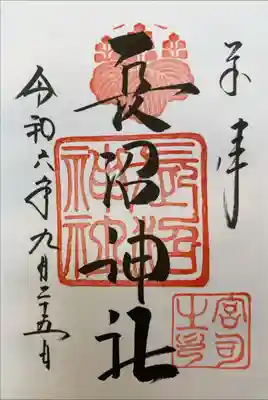 奉拝
長沼神社
令和六年九月二十五日
長沼神社
宮司之印